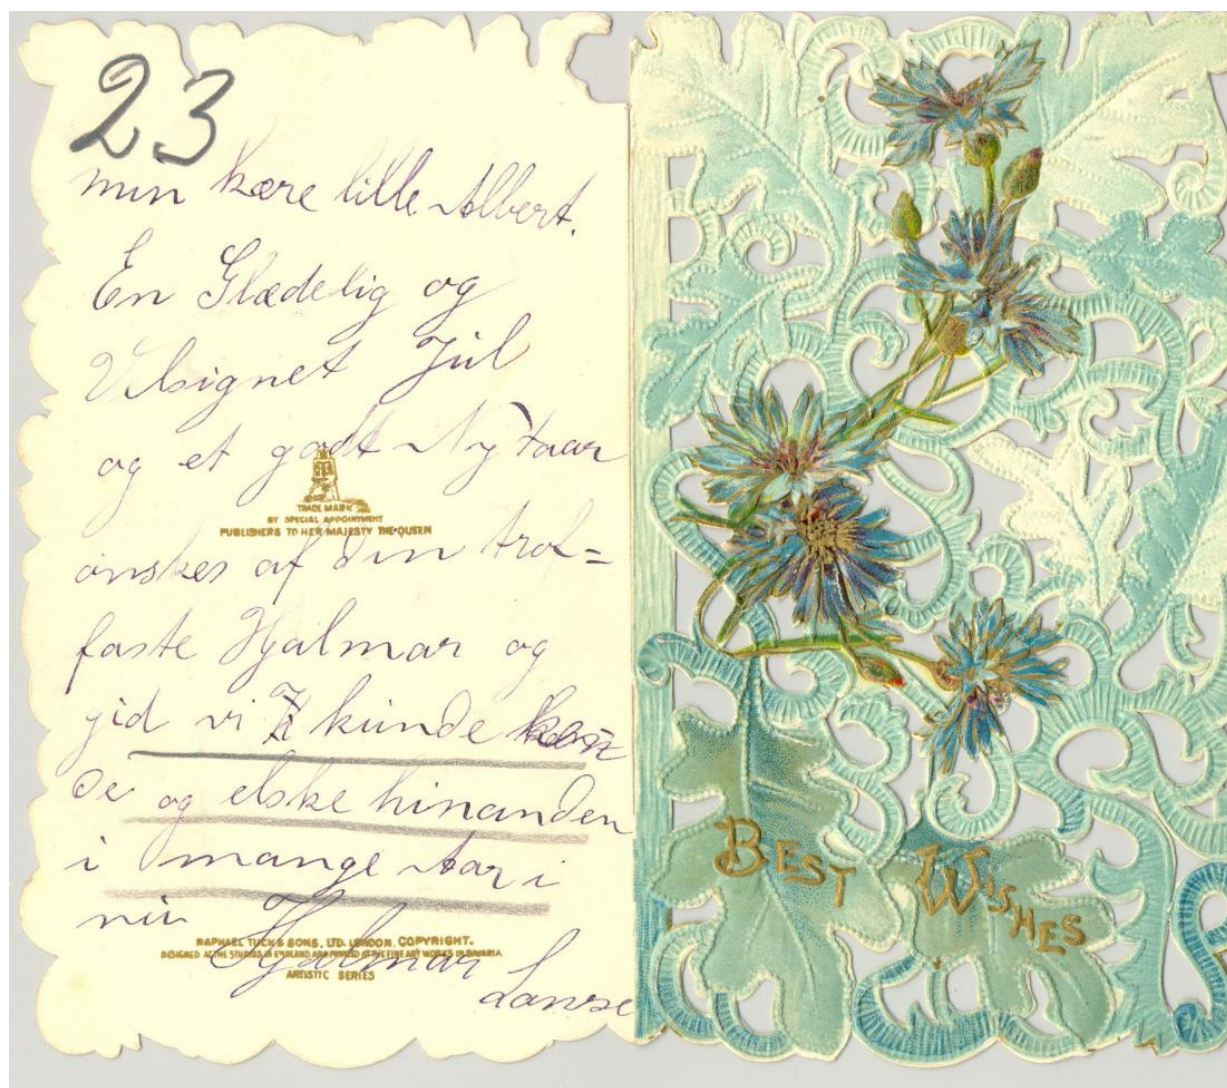 23
min kære lille Albert.
En Glædelig og
Velsignet Jul
og et godt Nytaar
TRADE MARK
BY SPECIAL APPOINTMENT
PUBLISHERS TO HER MAJESTY THE QUEEN
ønskes af din trol=
faste Hjalmar og
gid vi kunde
de og elske hinanden
i mange Aar i
Hjalmar
RAPHAEL TUCK & SONS, LTD. LONDON. COPYRIGHT.
DESIGNED AT THE STUDIOS IN ENGLAND AND PRINTED AT THE FINE ART WORKS IN BAVARIA
ARTISTIC SERIES
BEST WISHES